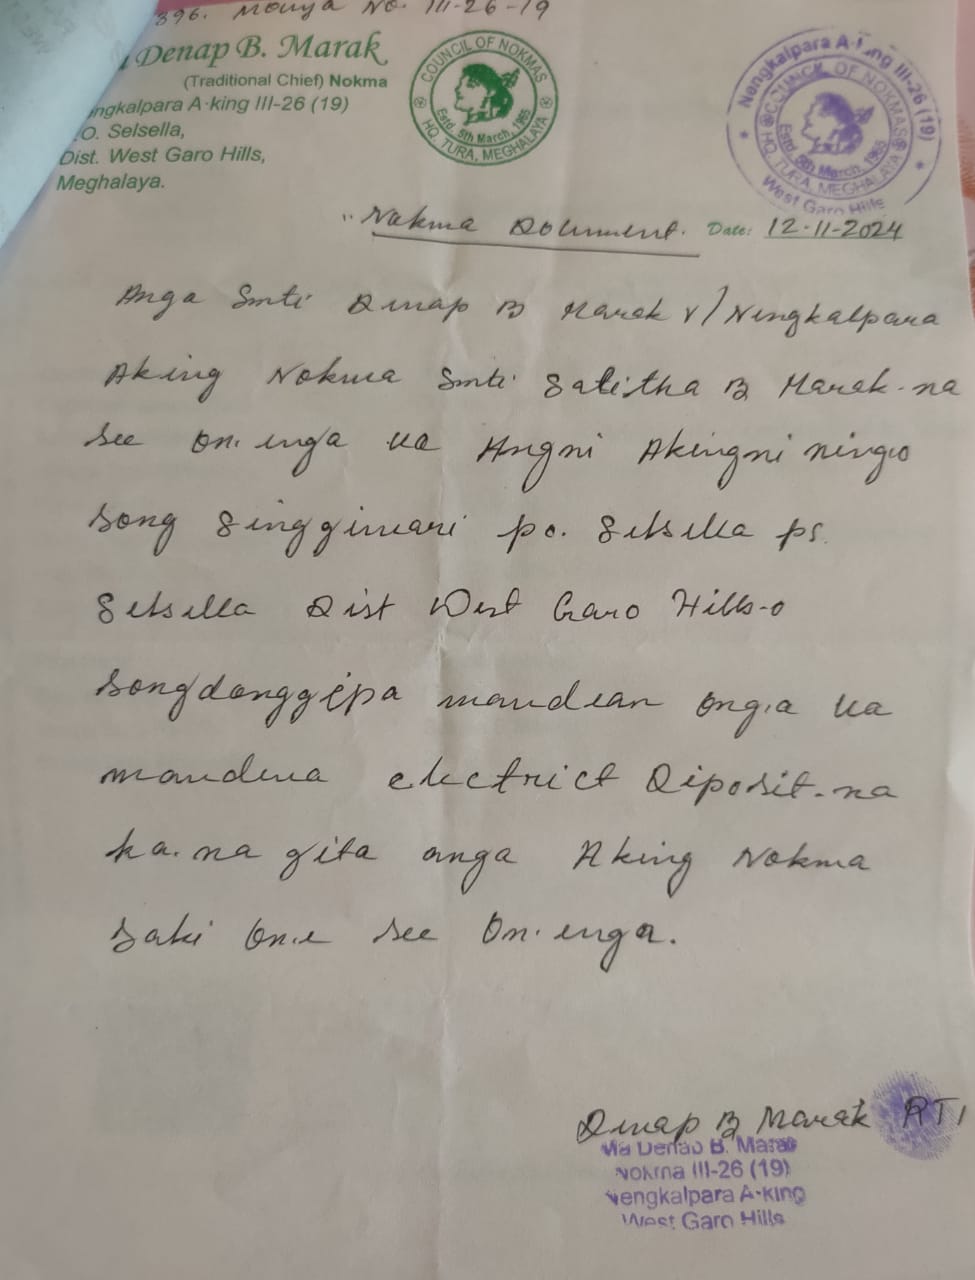 396. Mouja No. III-26-19
Denap B. Marak
(Traditional Chief) Nokma
ngkalpara A·king III-26 (19)
.O. Selsella,
Dist. West Garo Hills,
Meghalaya.
COUNCIL OF NOKMAS
Estd. 5th March, 1965
HQ. TURA, MEGHALAYA
Nengkalpara A·king III-26 (19)
COUNCIL OF NOKMAS
Estd. 5th March, 1965
HQ. TURA, MEGHALAYA
West Garo Hills
"Nokma Document. Date: 12-11-2024
Anga Smti Denap B Marak v/Nengkalpara
Aking Nokma Smti Salitha B Marak-na
see on·enga ua Angni Akingni ningo
song Singgimari po. Selsella ps.
Selsella Dist West Garo Hills-o
songdonggipa mandean ong·a ua
mandena electrict Diposit-na
ka·na gita anga Aking Nokma
saki on·e see on·enga.
Denap B Marak RTI
Ma Denap B. Marak
Nokma III-26 (19)
Nengkalpara A·king
West Garo Hills